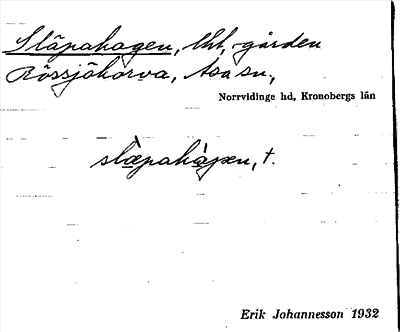 Släpahagen, lht, gården
Rössjöhorva, Asa sn,
Norrvidinge hd, Kronobergs län
slæ̀pahàgen, t.
Erik Johannesson 1932